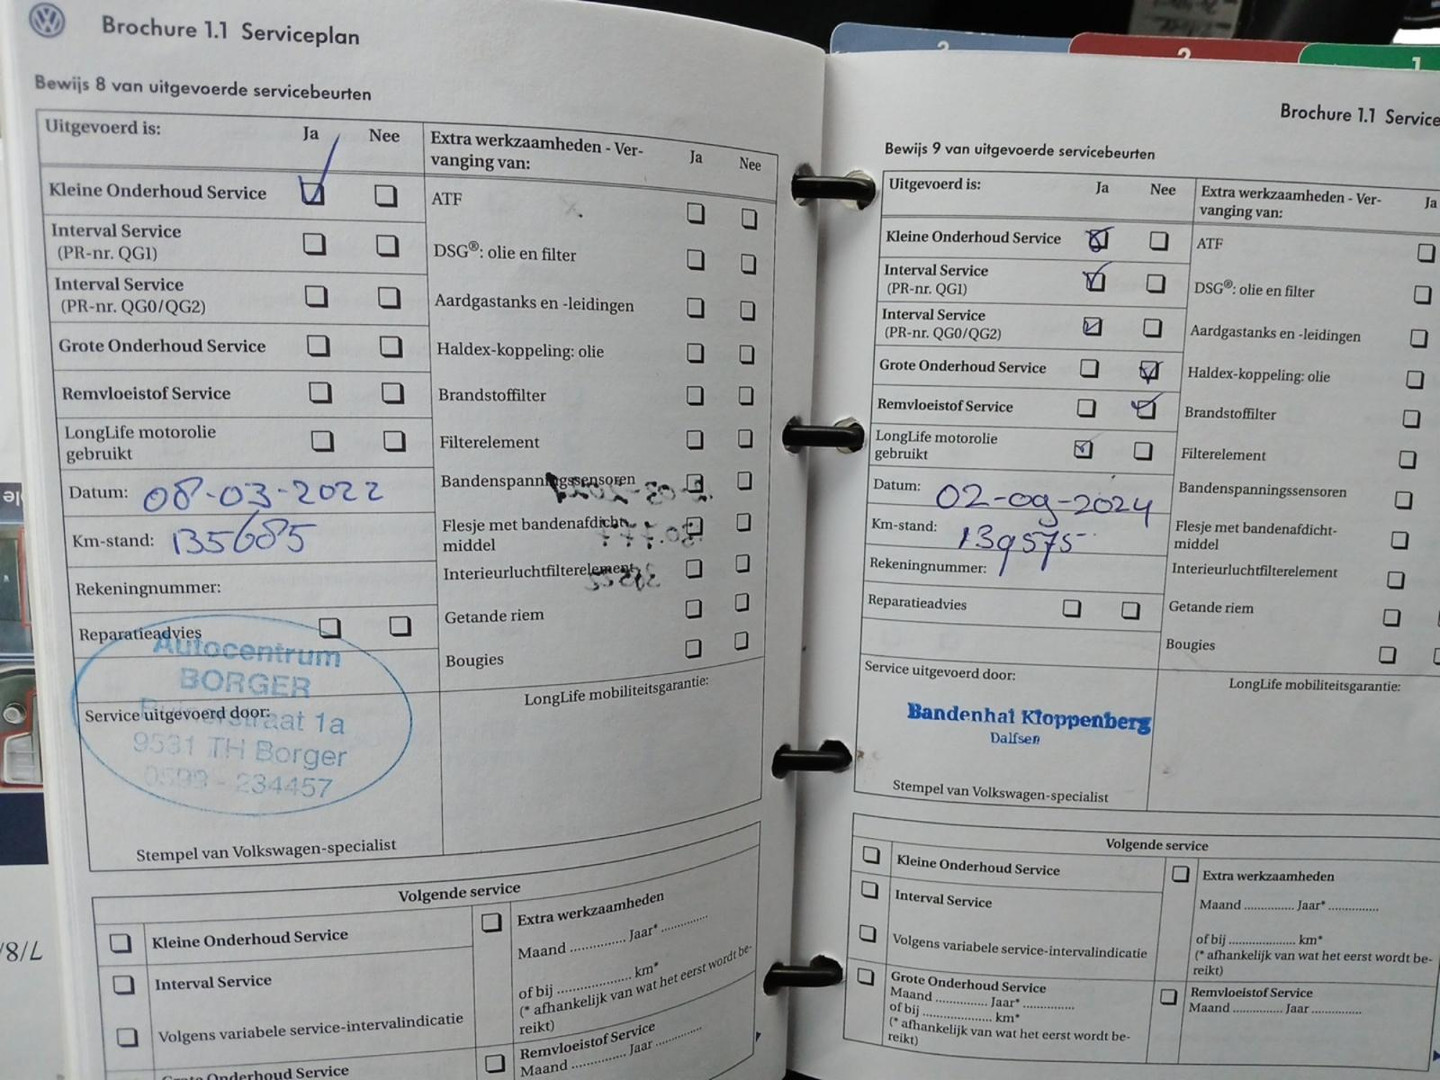 Brochure 1.1 Serviceplan
Bewijs 8 van uitgevoerde servicebeurten
Uitgevoerd is:
Ja
Nee
Kleine Onderhoud Service
Interval Service
(PR-nr. QG1)
Interval Service
(PR-nr. QG0/QG2)
Grote Onderhoud Service
Remvloeistof Service
LongLife motorolie
gebruikt
Datum: 08-03-2022
Km-stand: 135685
Rekeningnummer:
Reparatieadvies
Autocentrum
BORGER
Service uitgevoerd door:
9531 TH Borger
0599 - 234457
Stempel van Volkswagen-specialist
Extra werkzaamheden - Ver-
vanging van:
Ja
Nee
ATF
DSG®: olie en filter
Aardgastanks en -leidingen
Haldex-koppeling: olie
Brandstoffilter
Filterelement
Bandenspanningssensoren
Flesje met bandenafdicht-
middel
Interieurluchtfilterelement
Getande riem
Bougies
LongLife mobiliteitsgarantie:
Volgende service
Kleine Onderhoud Service
Interval Service
Volgens variabele service-intervalindicatie
Grote Onderhoud Service
Extra werkzaamheden
Maand .............. Jaar* ............
of bij .................... km*
(* afhankelijk van wat het eerst wordt be-
reikt)
Remvloeistof Service
Maand .............. Jaar ..............
2
2
1
Brochure 1.1 Service
Bewijs 9 van uitgevoerde servicebeurten
Uitgevoerd is:
Ja
Nee
Kleine Onderhoud Service
Interval Service
(PR-nr. QG1)
Interval Service
(PR-nr. QG0/QG2)
Grote Onderhoud Service
Remvloeistof Service
LongLife motorolie
gebruikt
Datum: 02-09-2024
Km-stand: 139575
Rekeningnummer:
Reparatieadvies
Service uitgevoerd door:
Bandenhal Kloppenberg
Dalfsen
Stempel van Volkswagen-specialist
Extra werkzaamheden - Ver-
vanging van:
Ja
ATF
DSG®: olie en filter
Aardgastanks en -leidingen
Haldex-koppeling: olie
Brandstoffilter
Filterelement
Bandenspanningssensoren
Flesje met bandenafdicht-
middel
Interieurluchtfilterelement
Getande riem
Bougies
LongLife mobiliteitsgarantie:
Volgende service
Kleine Onderhoud Service
Interval Service
Volgens variabele service-intervalindicatie
Grote Onderhoud Service
Maand .............. Jaar* ..............
of bij .................... km*
(* afhankelijk van wat het eerst wordt be-
reikt)
Extra werkzaamheden
Maand .............. Jaar* ..............
of bij .................... km*
(* afhankelijk van wat het eerst wordt be-
reikt)
Remvloeistof Service
Maand .............. Jaar ..............